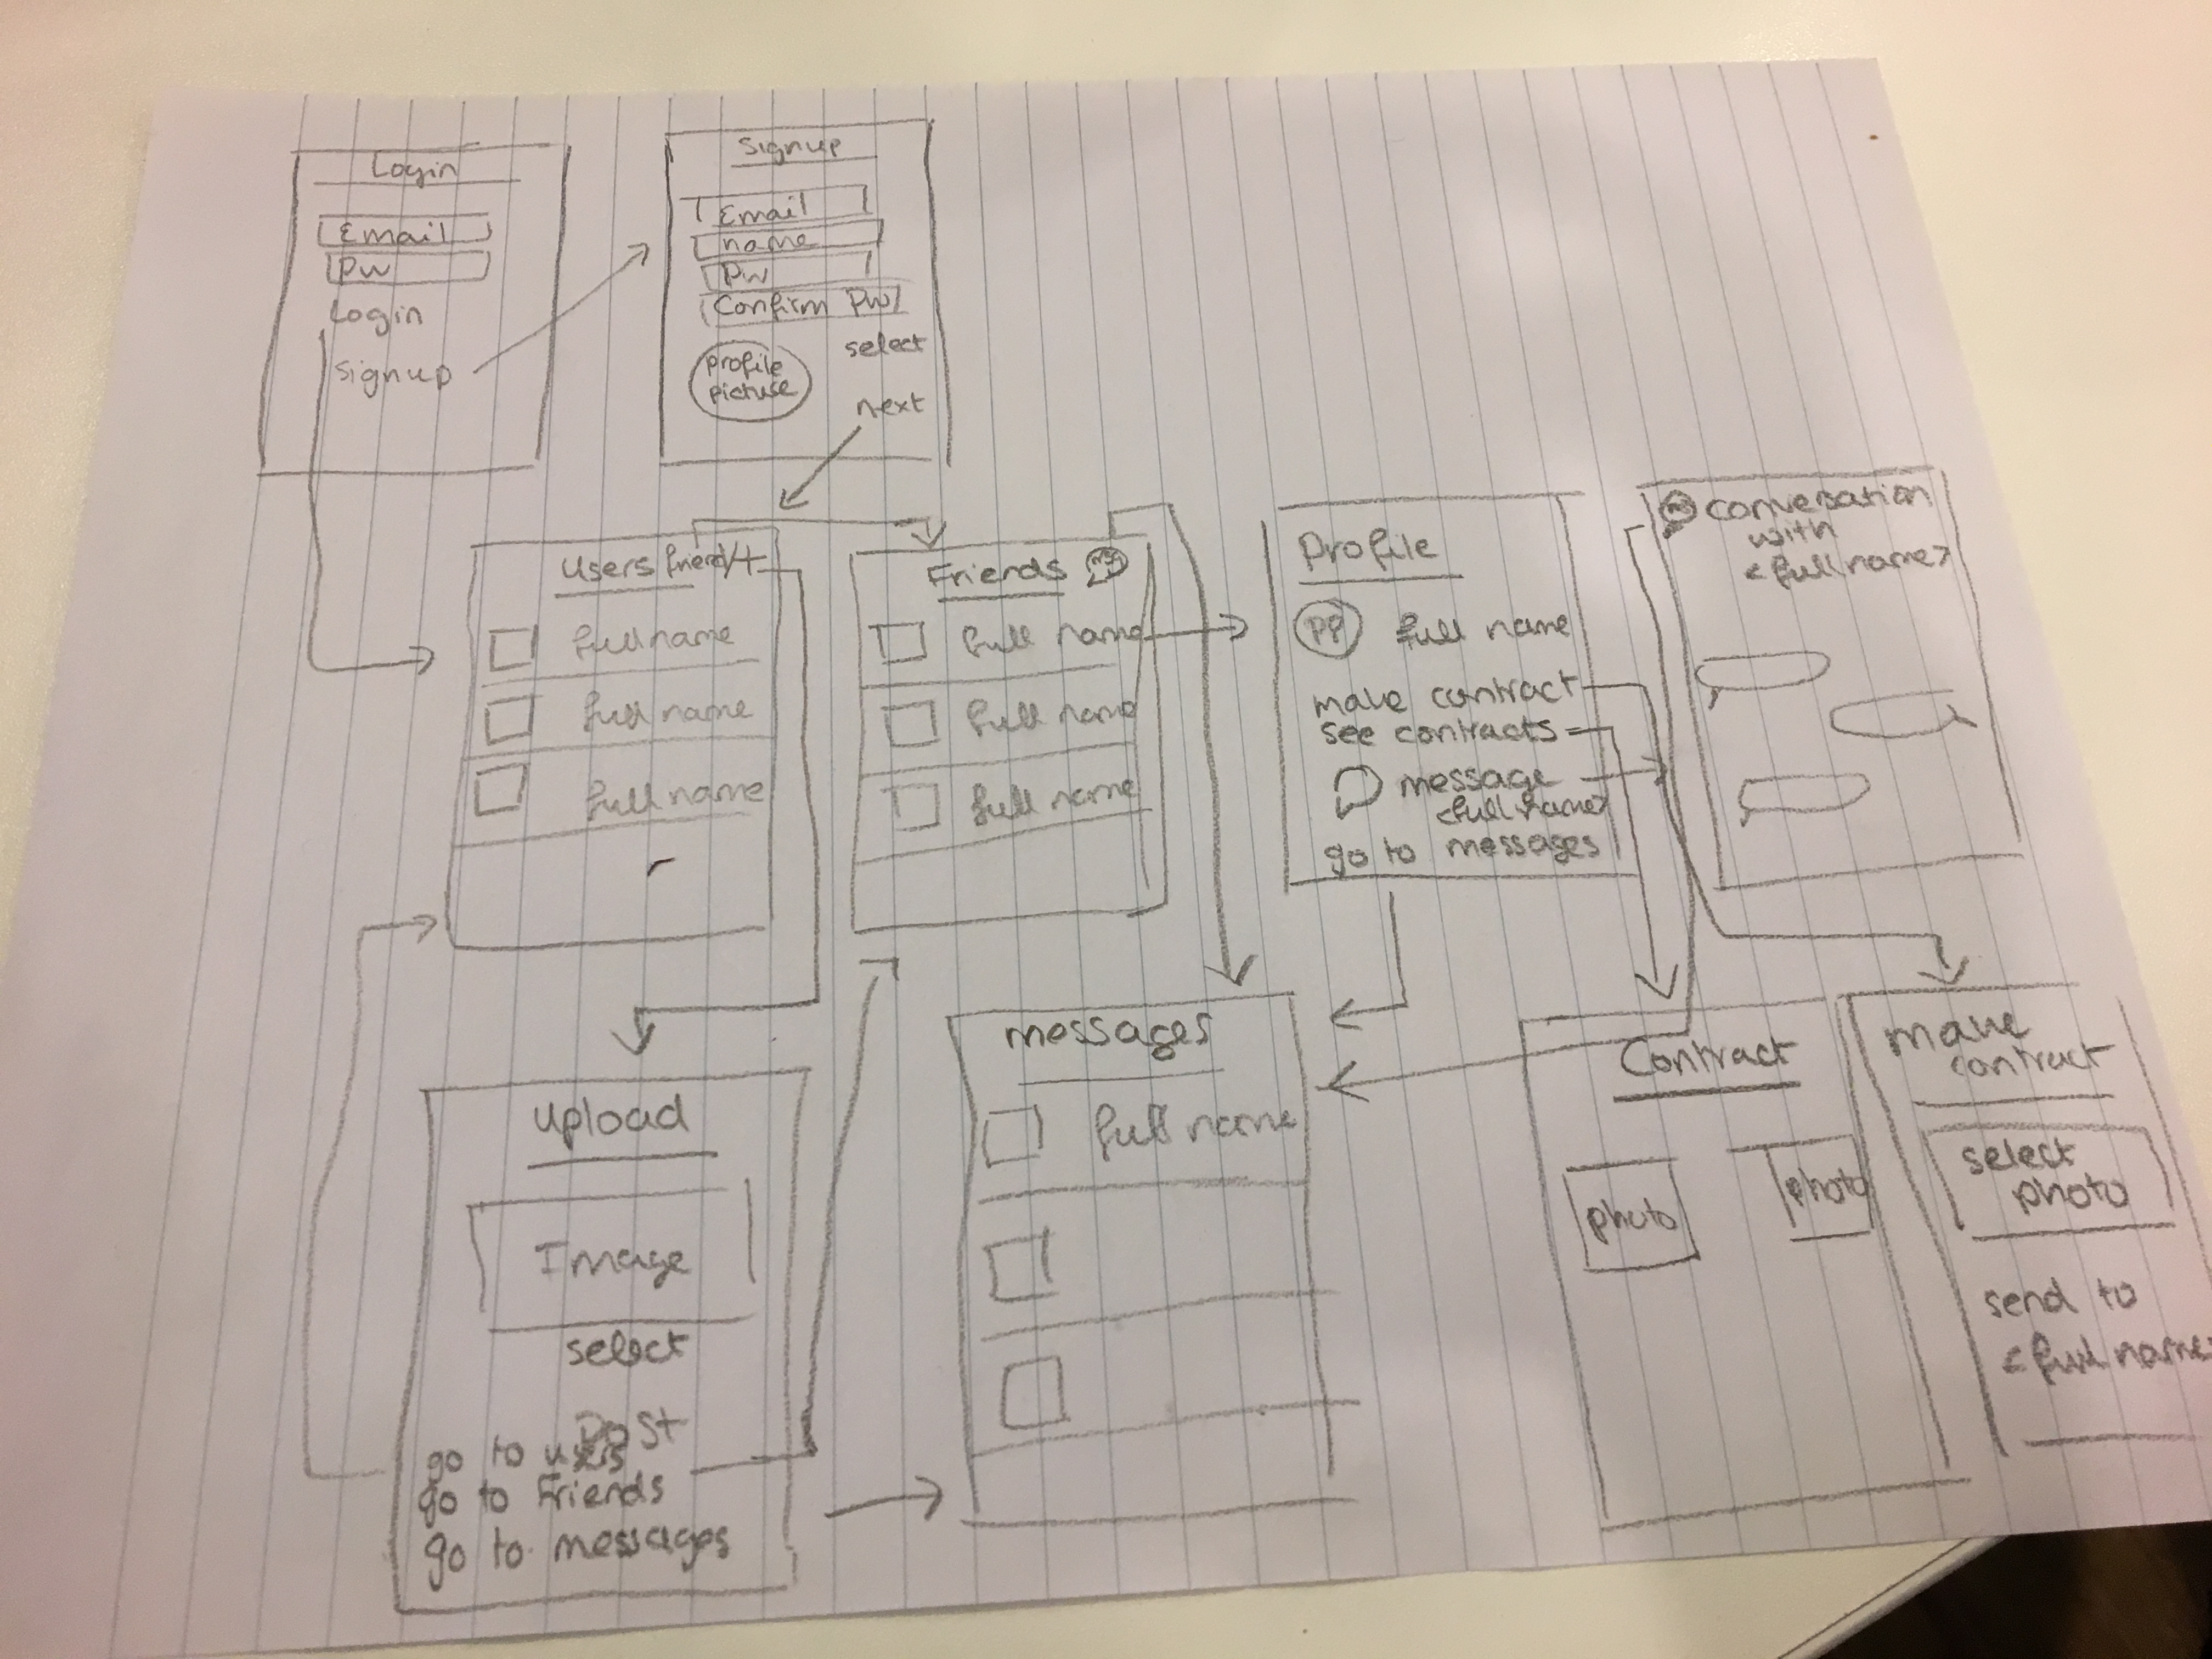 Login
Email
PW
Login
signup
Signup
Email
name
PW
Confirm PW
profile
picture
select
next
Users friend/+
full name
full name
full name
Friends
full name
full name
full name
Profile
PP full name
make contract
see contracts
message
<full name>
go to messages
conversation
with
<full name>
upload
Image
select
Post
go to users
go to Friends
go to messages
messages
full name
Contract
photo
photo
make
contract
select
photo
send to
<full name>